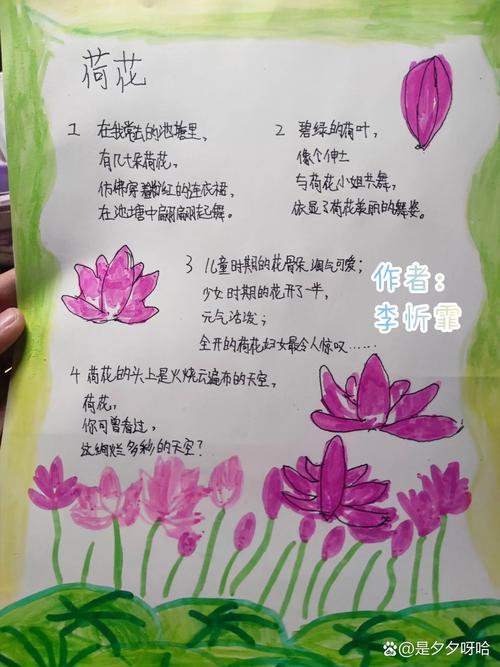 荷花
1 在我常去的池塘里，
有几十朵荷花，
仿佛穿着粉红的连衣裙，
在池塘中翩翩起舞。
2 碧绿的荷叶，
像个伸士
与荷花小姐共舞，
依显了荷花美丽的舞姿。
3 儿童时期的花骨朵淘气可爱；
少女时期的花开了一半，
元气活泼；
全开的荷花妇女最令人惊叹……
作者：
李忻霏
4 荷花的头上是火烧云遍布的天空，
荷花，
你可曾看过，
这绚烂多彩的天空？
@是夕夕呀哈